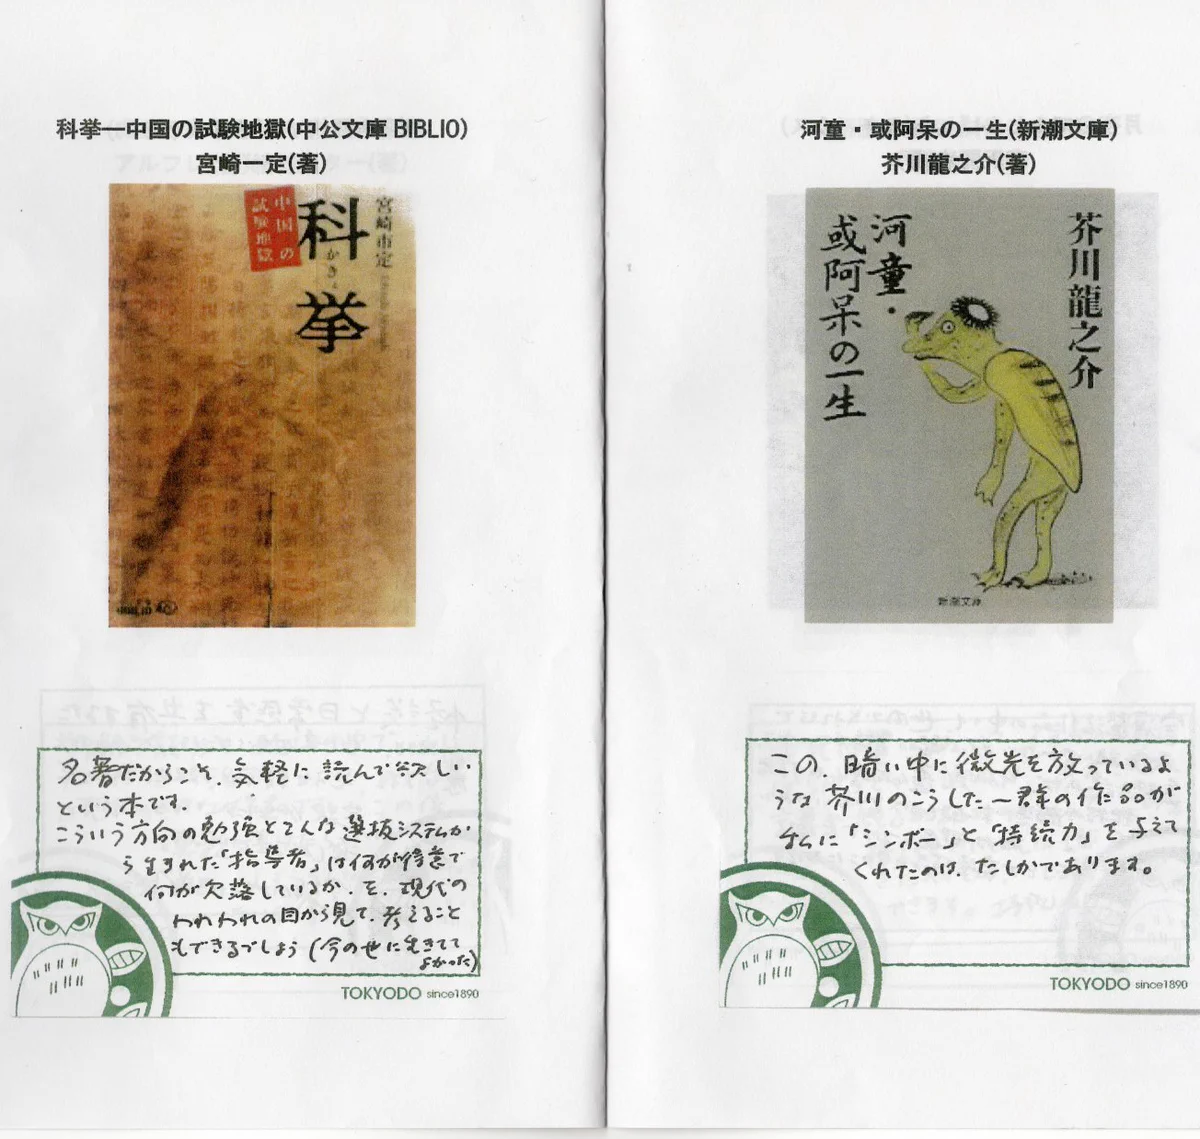 科挙―中国の試験地獄(中公文庫 BIBLIO)
宮崎一定(著)
宮崎市定
科挙
かきょ
中国の
試験地獄
名著だからこそ、気軽に読んで欲しい
という本です。
こういう方向の勉強とこんな選抜システムか
ら生まれた「指導者」は何が得意で
何が欠落しているか、を、現代の
われわれの目から見て、考えること
もできるでしょう(今の世に生きてて
よかった)
TOKYODO since1890
河童・或阿呆の一生(新潮文庫)
芥川龍之介(著)
芥川龍之介
河童・
或阿呆の一生
新潮文庫
この、暗い中に微光を放っているよ
うな芥川のこうした一群の作品が
私に「シンボー」と「持続力」を与えて
くれたのは、たしかであります。
TOKYODO since1890